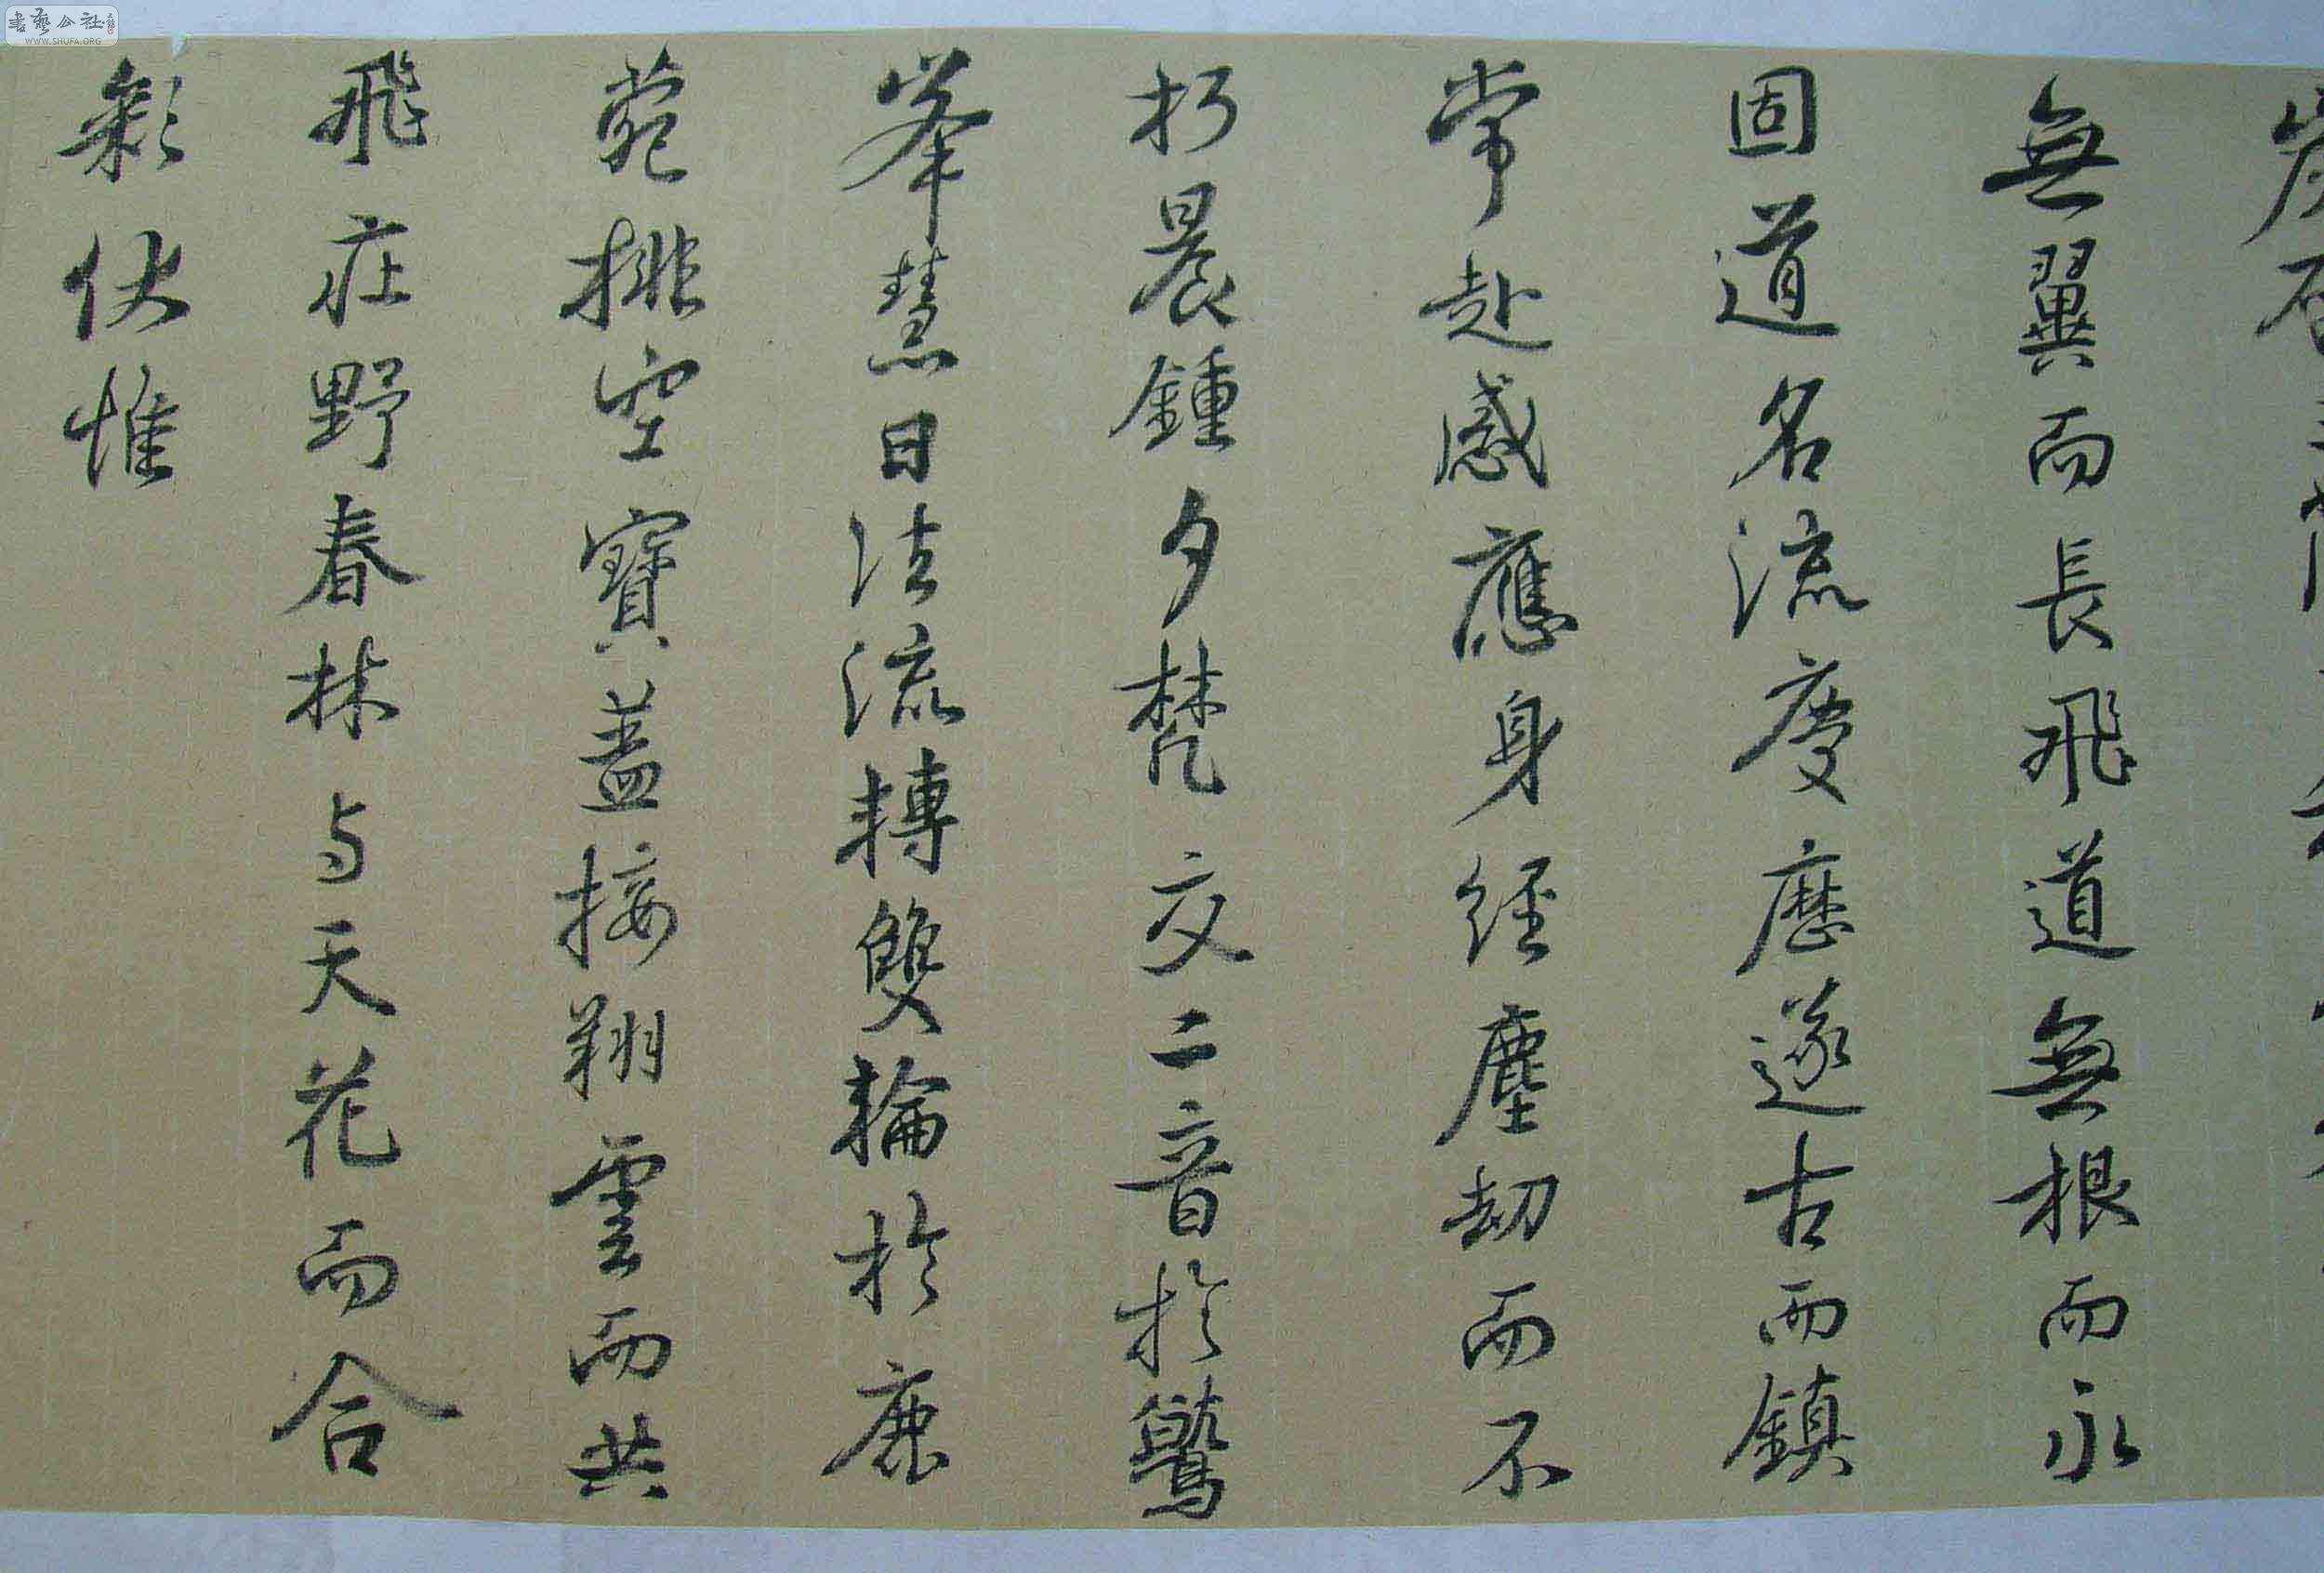 無翼而長飛道無根而永
固道名流慶歷遂古而鎮
常赴感應身經塵劫而不
朽晨鍾夕梵交二音於鷲
峯慧日法流轉雙輪於鹿
菀排空寶蓋接翔雲而共
飛莊野春林与天花而合
彩伏惟
書藝公社
WWW.SHUFA.ORG